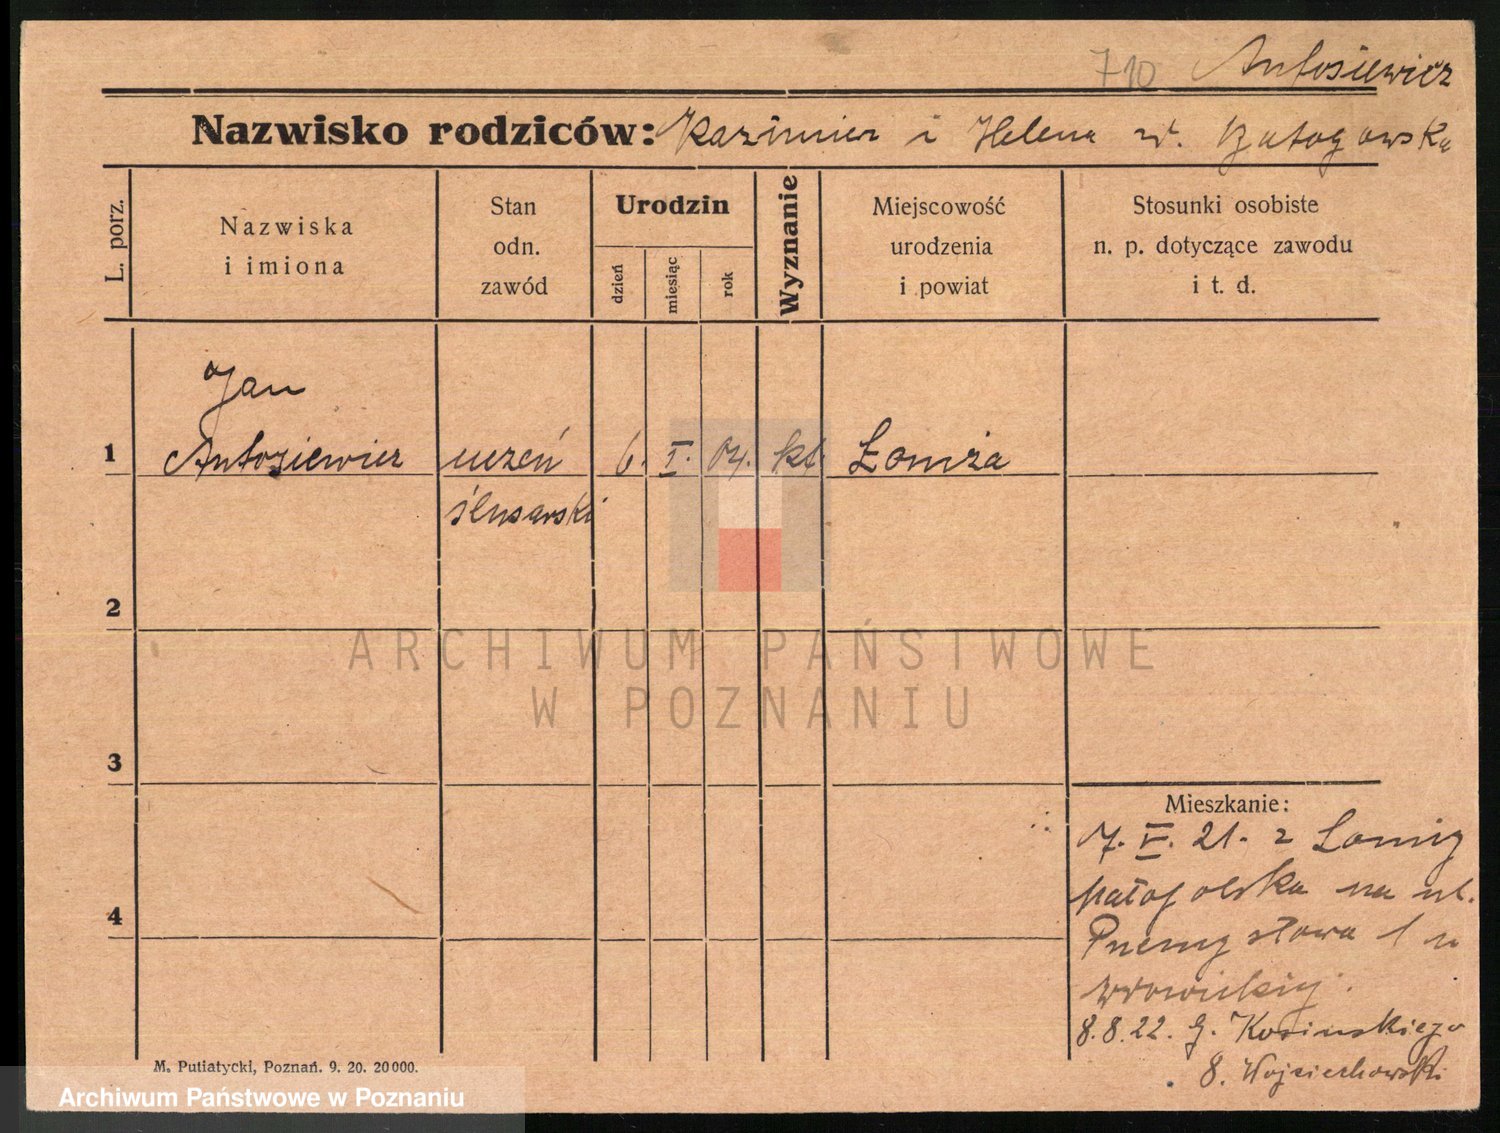 710 Antosiewicz
Nazwisko rodziców: Kazimierz i Helena
L. porz.
Nazwiska
i imiona
Stan
odn.
zawód
Urodzin
dzień
miesiąc
rok
Wyznanie
Miejscowość
urodzenia
i powiat
Stosunki osobiste
n. p. dotyczące zawodu
i t. d.
Jan
1 Antosiewicz uczeń 6. I. 04. kt. Łomża
ślusarski
2
ARCHIWUM PAŃSTWOWE
W POZNANIU
3
Mieszkanie:
7. V. 21. z
na ul.
4
Przemysłowa 1 u
8.8.22. G. Kosinskiego
8. Wojciechowski
M. Putiatycki, Poznań. 9. 20. 20000.
Archiwum Państwowe w Poznaniu